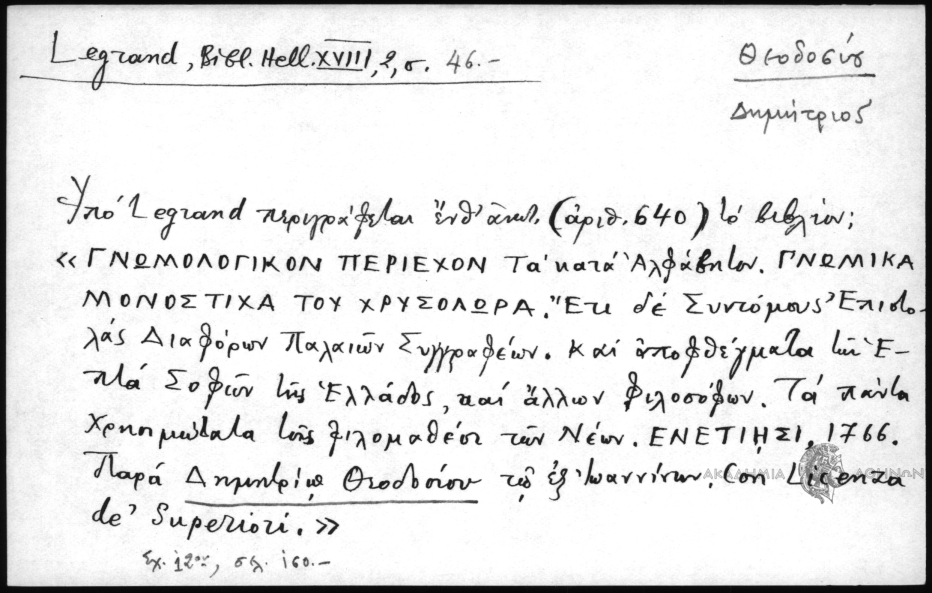 Legrand, Bibl. Hell. XVIII, 2, σ. 46.-
Θεοδοσίου
Δημήτριος
Ὑπό Legrand περιγράφεται ἔνθ' ἀνωτ. (ἀριθ. 640) τό βιβλίον;
«ΓΝΩΜΟΛΟΓΙΚΟΝ ΠΕΡΙΕΧΟΝ Τά κατά Ἀλφάβητον. ΓΝΩΜΙΚΑ
ΜΟΝΟΣΤΙΧΑ ΤΟΥ ΧΡΥΣΟΛΩΡΑ. Ἔτι δέ Συντόμους Ἐπιστο-
λάς Διαφόρων Παλαιῶν Συγγραφέων. Καί ἀποφθέγματα τῶν Ἑ-
πτά Σοφῶν τῆς Ἑλλάδος, καί ἄλλων φιλοσόφων. Τά πάντα
Χρησιμώτατα τοῖς φιλομαθέσι τῶν Νέων. ΕΝΕΤΙῌΣΙ, 1766.
Παρά Δημητρίῳ Θεοδοσίου τῷ ἐξ Ἰωαννίνων. Con Licenza
de' Superiori.»
Σχ. 12ον, σελ. 160.-
ΑΚΑΔΗΜΙΑ ΑΘΗΝΩΝ